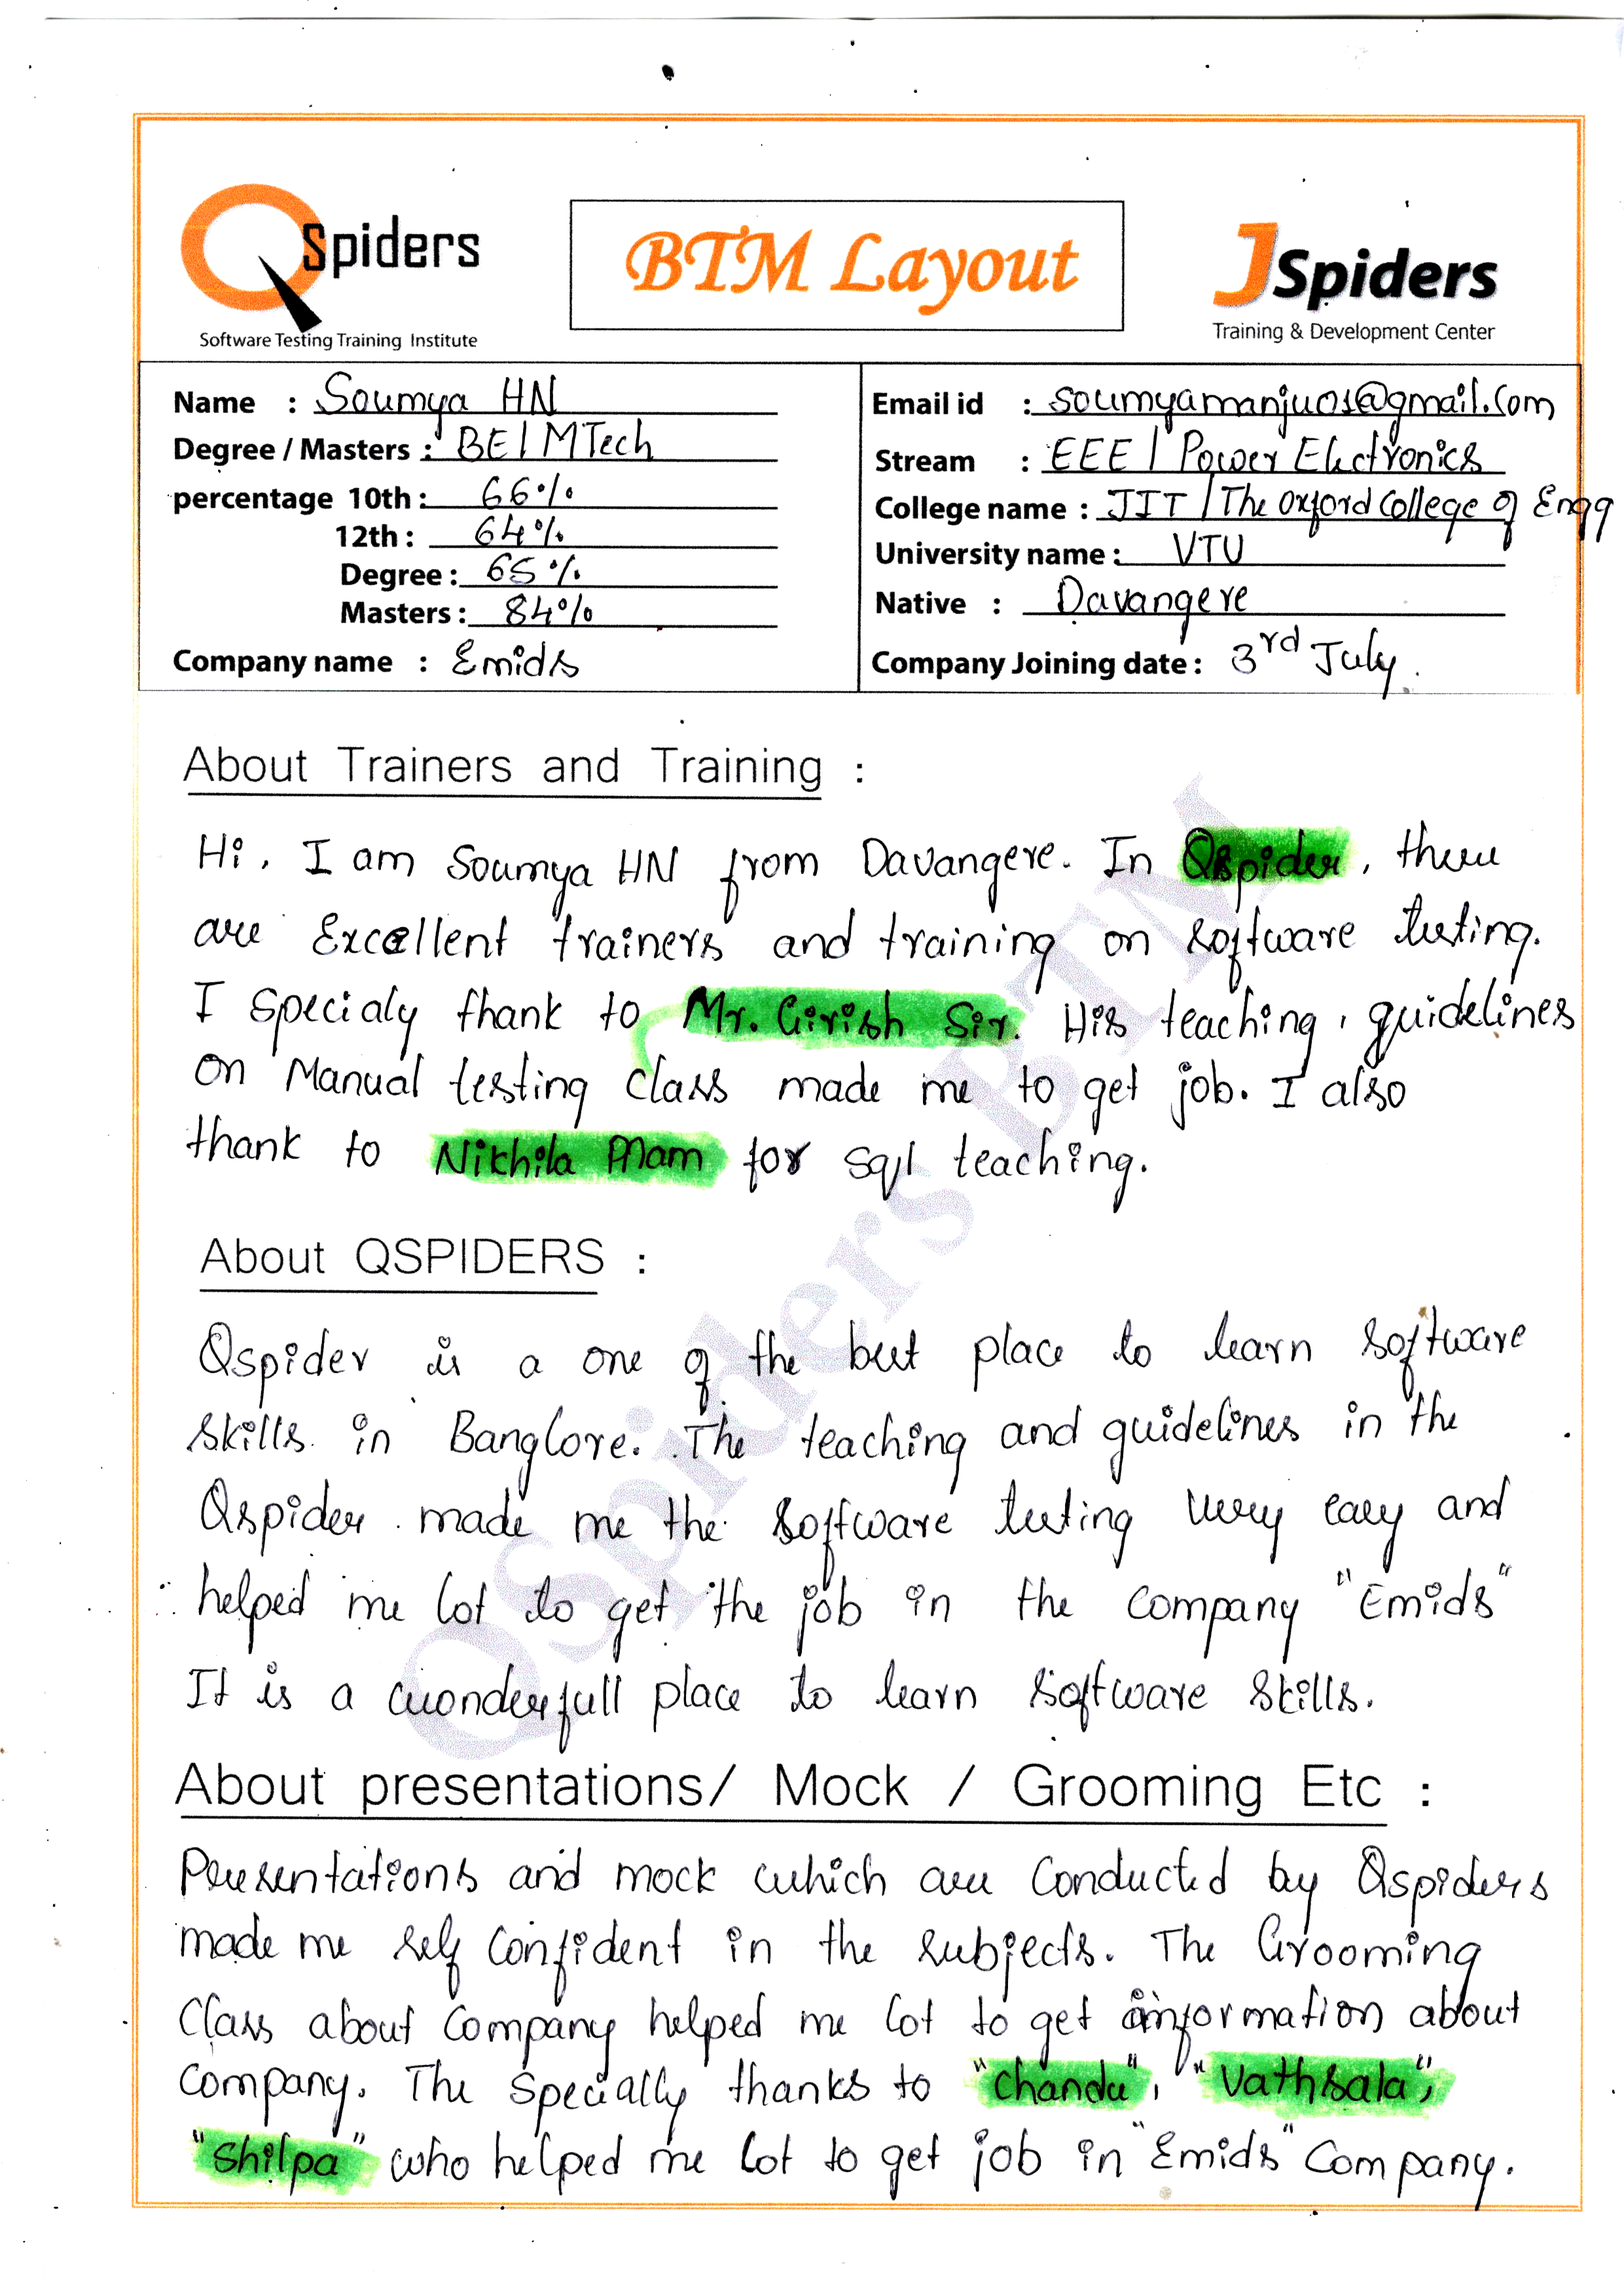 QSpiders
Software Testing Training Institute
BTM Layout
JSpiders
Training & Development Center
Name : Soumya HN
Degree / Masters : BE | MTech
percentage 10th : 66%
12th : 64%
Degree : 65%
Masters : 84%
Company name : Emids
Email id : soumyamanju01@gmail.com
Stream : EEE | Power Electronics
College name : JIT | The Oxford College of Engg
University name : VTU
Native : Davangere
Company Joining date : 3rd July.
About Trainers and Training :
Hi, I am Soumya HN from Davangere. In Qspider, there
are Excellent trainers and training on software testing.
I specialy thank to Mr. Girish Sir. His teaching, guidelines
on Manual testing class made me to get job. I also
thank to Nikhila Mam for sql teaching.
About QSPIDERS :
Qspider is a one of the best place to learn software
skills in Banglore. The teaching and guidelines in the
Qspider made me the software testing very easy and
helped me lot to get the job in the company "Emids"
It is a wonderfull place to learn software skills.
About presentations/ Mock / Grooming Etc :
Presentations and mock which are conducted by Qspiders
made me self confident in the subjects. The Grooming
class about company helped me lot to get information about
company. The specially thanks to "chandu", "Vathsala",
"shilpa" who helped me lot to get job in "Emids" Company.
QSpiders BTM